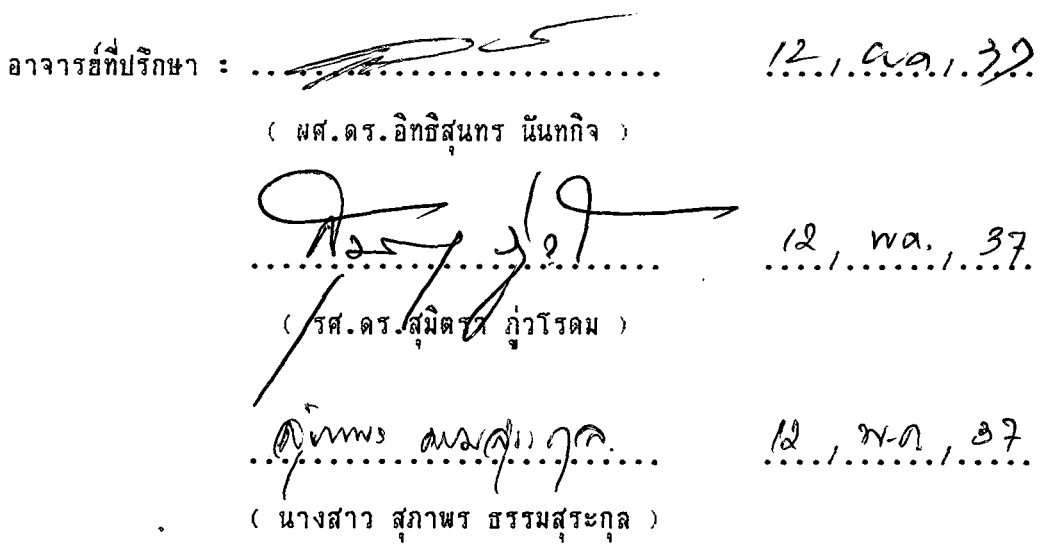 อาจารย์ที่ปรึกษา : 12 , พค , 37
( ผศ.ดร.อิทธิสุนทร นันทกิจ )
12 , พค. , 37
( รศ.ดร.สุมิตรา ภู่วโรดม )
สุภาพร ธรรมสุระกุล 12 , พ.ค , 37
( นางสาว สุภาพร ธรรมสุระกุล )